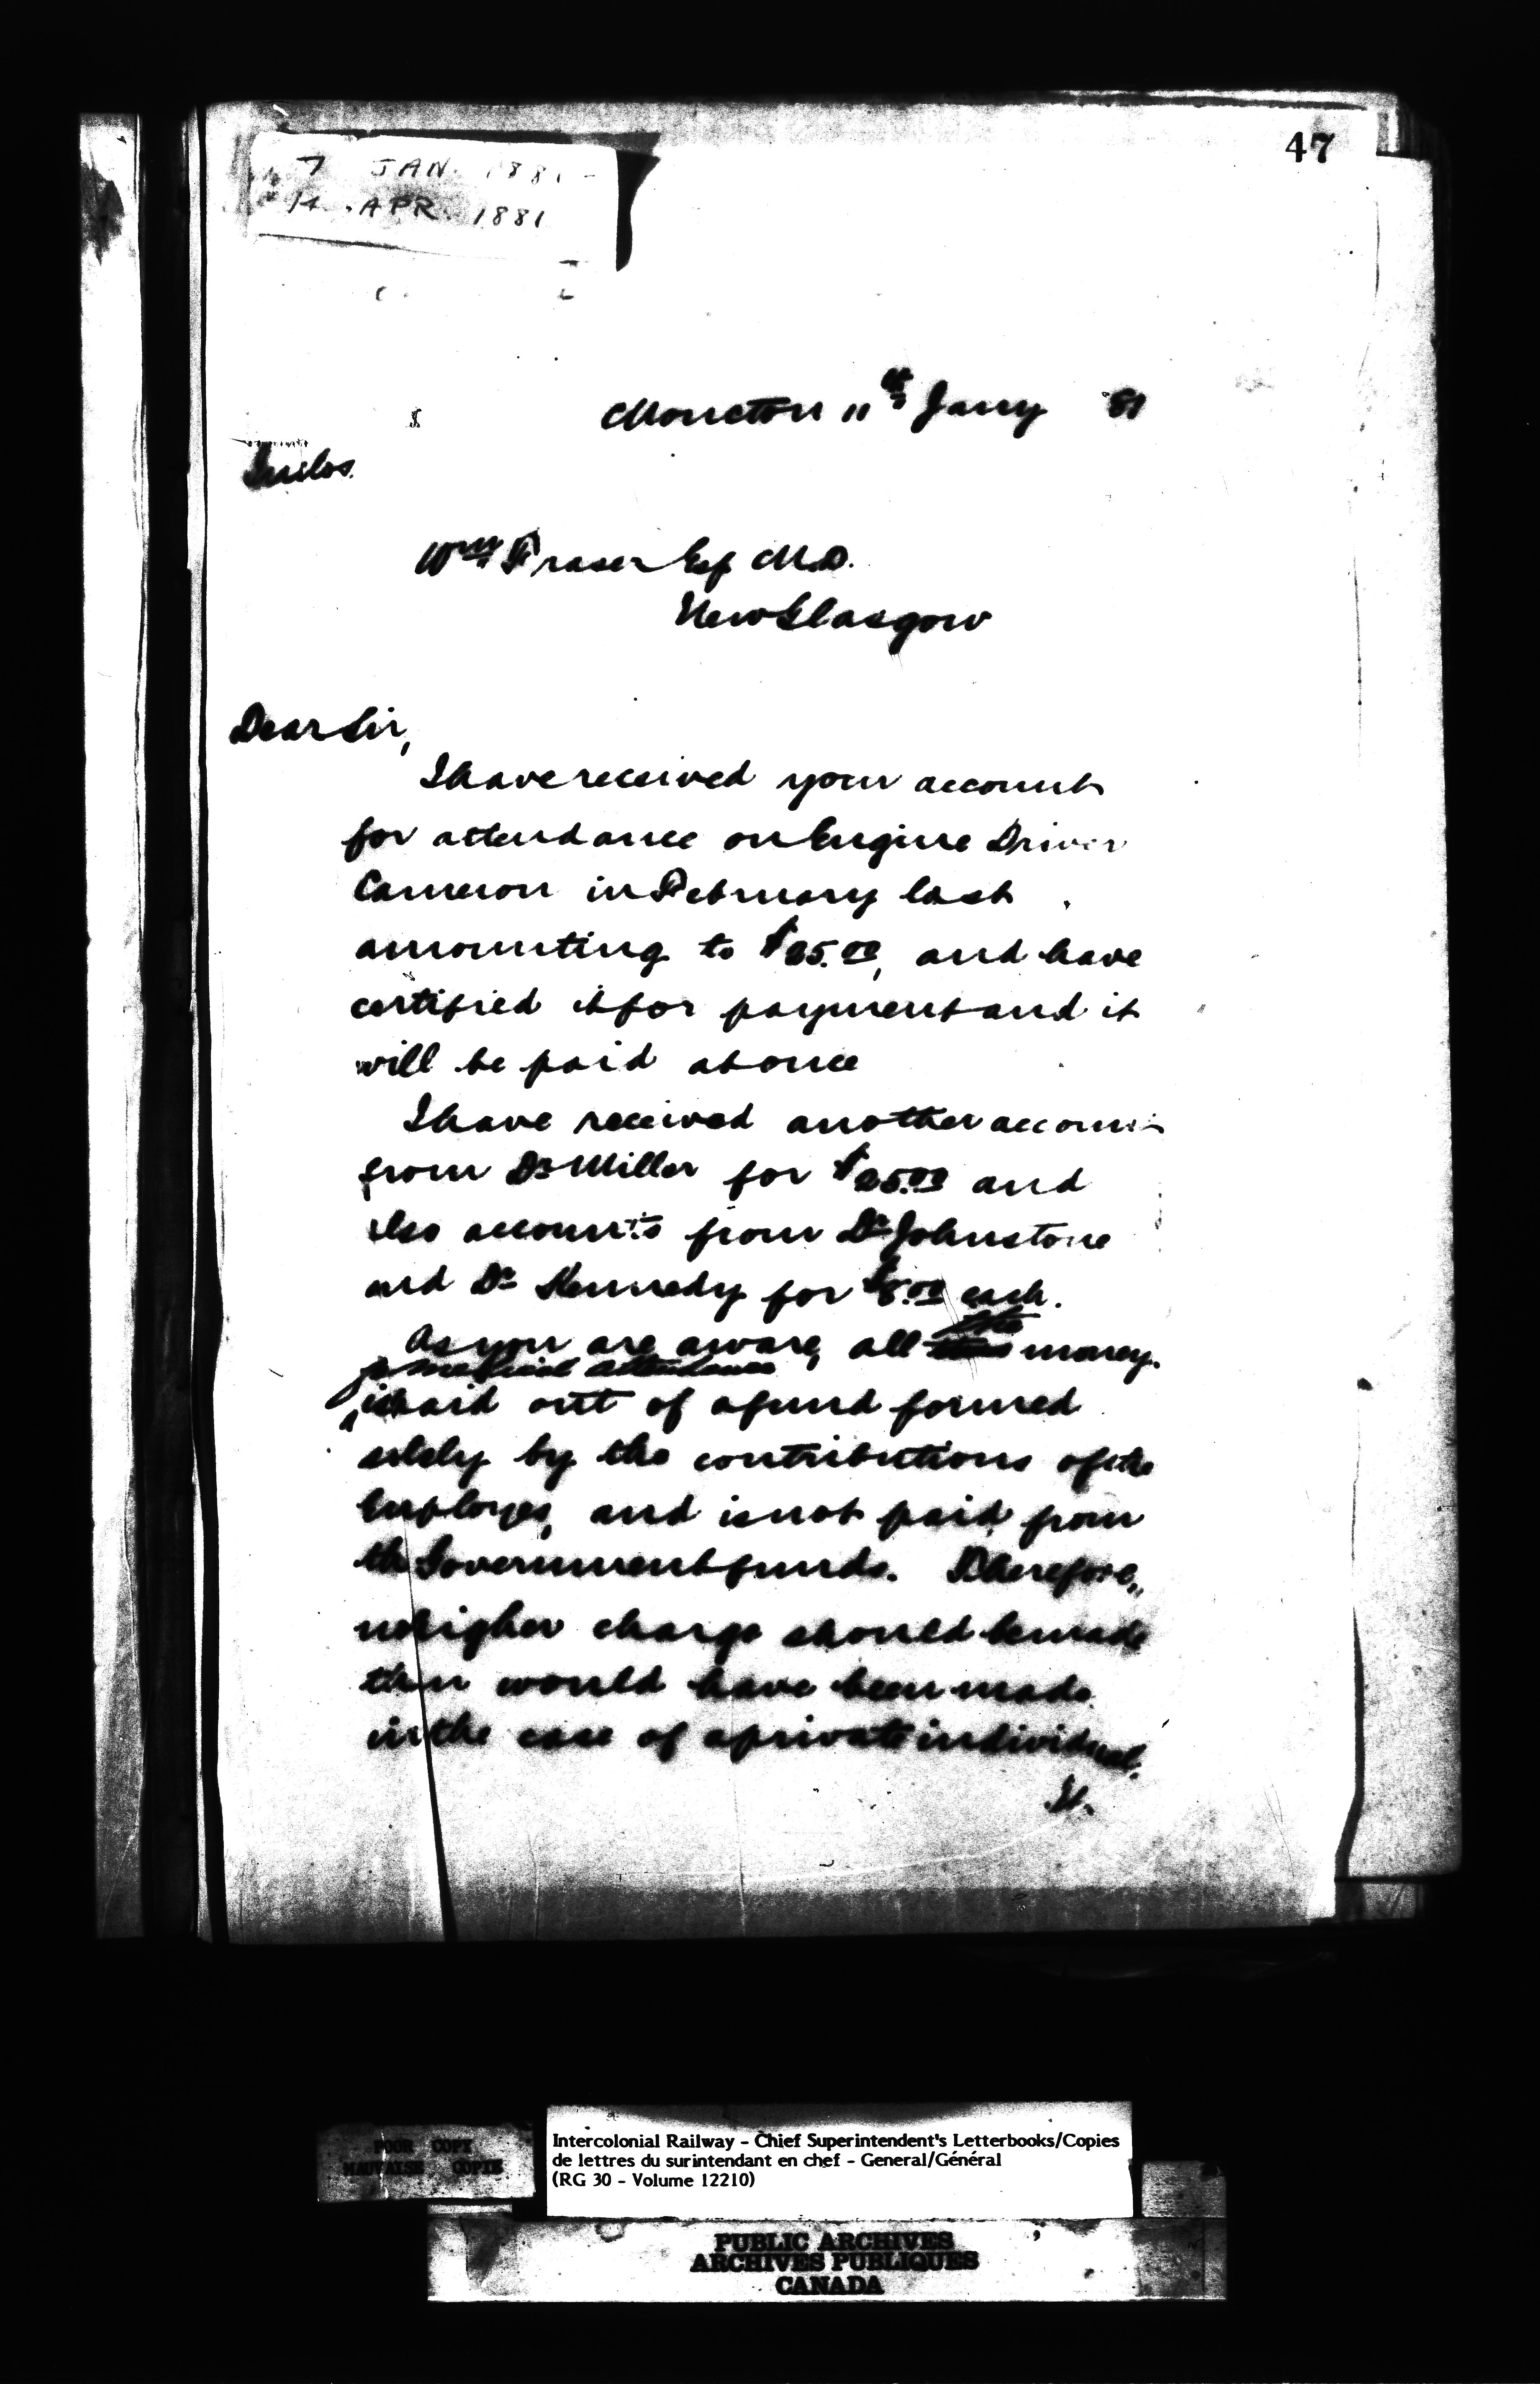 47
7 JAN. 1881 -
14 APR. 1881
Moncton 11th Jany 81
Wm Fraser Esq M.D.
New Glasgow
Dear Sir,
I have received your account
for attendance on Engine Driver
Cameron in February last
amounting to $25.00, and have
certified it for payment and it
will be paid at once
I have received another account
from Dr Miller for $25.00 and
also accounts from Dr Johnstone
and Dr Kennedy for $8.00 each.
As you are aware, all the money
for medical attendance
is paid out of a fund formed
solely by the contributions of the
Employes, and is not paid from
the Government funds. Therefore,
no higher charge should be made
than would have been made
in the case of a private individual.
POOR COPY
MAUVAISE COPIE
Intercolonial Railway - Chief Superintendent's Letterbooks/Copies
de lettres du surintendant en chef - General/Général
(RG 30 - Volume 12210)
PUBLIC ARCHIVES
ARCHIVES PUBLIQUES
CANADA